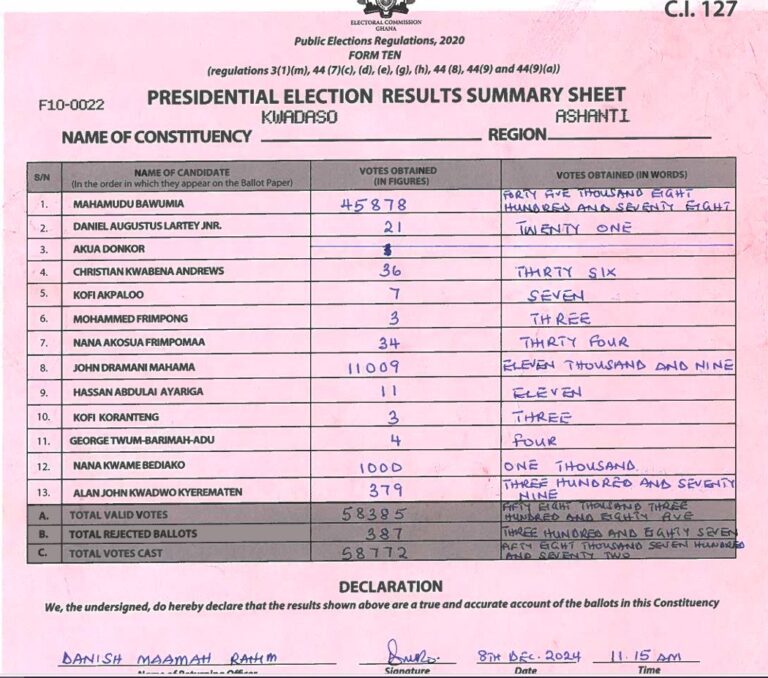 C.I. 127
ELECTORAL COMMISSION
GHANA
Public Elections Regulations, 2020
FORM TEN
(regulations 3(1)(m), 44 (7)(c), (d), (e), (g), (h), 44 (8), 44(9) and 44(9)(a))
F10-0022 PRESIDENTIAL ELECTION RESULTS SUMMARY SHEET
NAME OF CONSTITUENCY KWADASO REGION ASHANTI
S/N NAME OF CANDIDATE (In the order in which they appear on the Ballot Paper) VOTES OBTAINED (IN FIGURES) VOTES OBTAINED (IN WORDS)
1. MAHAMUDU BAWUMIA 45878 FORTY FIVE THOUSAND EIGHT HUNDRED AND SEVENTY EIGHT
2. DANIEL AUGUSTUS LARTEY JNR. 21 TWENTY ONE
3. AKUA DONKOR
4. CHRISTIAN KWABENA ANDREWS 36 THIRTY SIX
5. KOFI AKPALOO 7 SEVEN
6. MOHAMMED FRIMPONG 3 THREE
7. NANA AKOSUA FRIMPOMAA 34 THIRTY FOUR
8. JOHN DRAMANI MAHAMA 11009 ELEVEN THOUSAND AND NINE
9. HASSAN ABDULAI AYARIGA 11 ELEVEN
10. KOFI KORANTENG 3 THREE
11. GEORGE TWUM-BARIMAH-ADU 4 FOUR
12. NANA KWAME BEDIAKO 1000 ONE THOUSAND
13. ALAN JOHN KWADWO KYEREMATEN 379 THREE HUNDRED AND SEVENTY NINE
A. TOTAL VALID VOTES 58385 FIFTY EIGHT THOUSAND THREE HUNDRED AND EIGHTY FIVE
B. TOTAL REJECTED BALLOTS 387 THREE HUNDRED AND EIGHTY SEVEN
C. TOTAL VOTES CAST 58772 FIFTY EIGHT THOUSAND SEVEN HUNDRED AND SEVENTY TWO
DECLARATION
We, the undersigned, do hereby declare that the results shown above are a true and accurate account of the ballots in this Constituency
DANISH MAAMAH RAHIM 8TH DEC. 2024 11.15 AM
Name of Returning Officer Signature Date Time